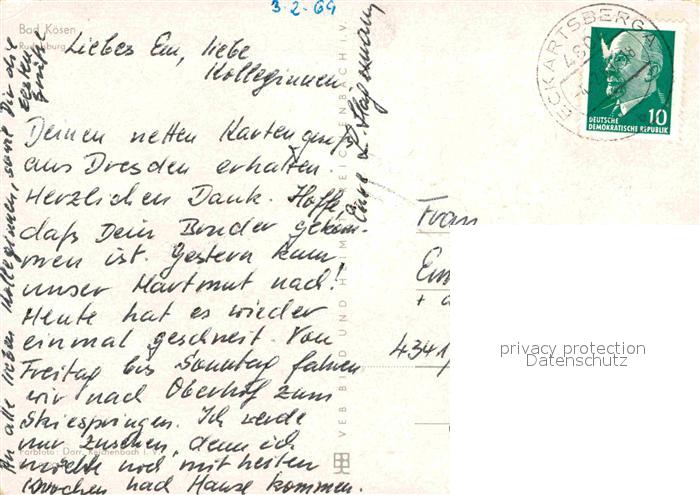 3.2.69
Bad Kösen
Rudelsburg
Liebes Em, liebe
Kolleginnen
Deinen netten Kartengruß
aus Dresden erhalten.
Herzlichen Dank. Hoffe,
daß Dein Bruder gekom-
men ist. Gestern kam
unser Hartmut nach!
Heute hat es wieder
einmal geschneit. Von
Freitag bis Sonntag fahren
wir nach Oberhof zum
Skiespringen. Ich werde
nur zusehen, denn ich
möchte noch mit heilen
Knochen nach Hause kommen.
Eure
An alle lieben Kolleginnen, sowie Dir die
besten
Grüße
Farbfoto: Darr, Reichenbach i. V.
VEB BILD UND HEIMAT REICHENBACH I.V.
ECKARTSBERGA
10
DEUTSCHE
DEMOKRATISCHE REPUBLIK
Frau
+
4341
privacy protection
Datenschutz